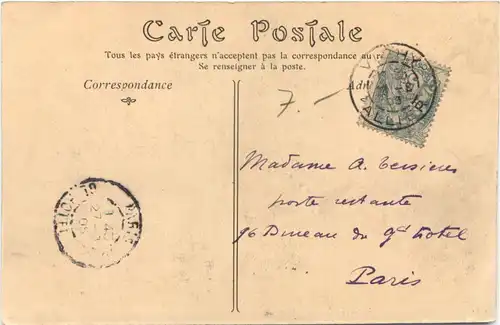 Carte Postale
Tous les pays étrangers n'acceptent pas la correspondance au
Se renseigner à la poste.
Correspondance
7. -
VICHY
ALLIER
Madame A. Tersières
poste restante
96 Bureau du Gd hotel
Paris
PARIS